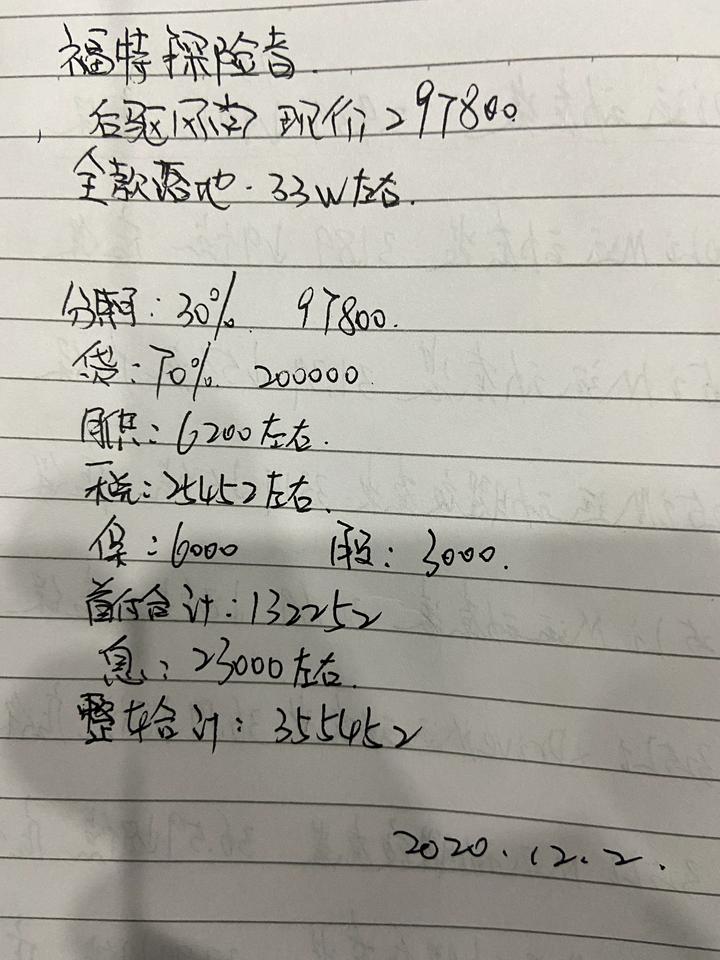 福特探险者.
后驱风尚 现价 297800.
全款落地. 33W左右.
分期: 30% 97800.
贷: 70% 200000
月供: 6200左右.
税: 25452左右.
保: 6000 服: 3000.
首付合计: 132252
息: 23000左右.
整车合计: 355452
2020.12.2.